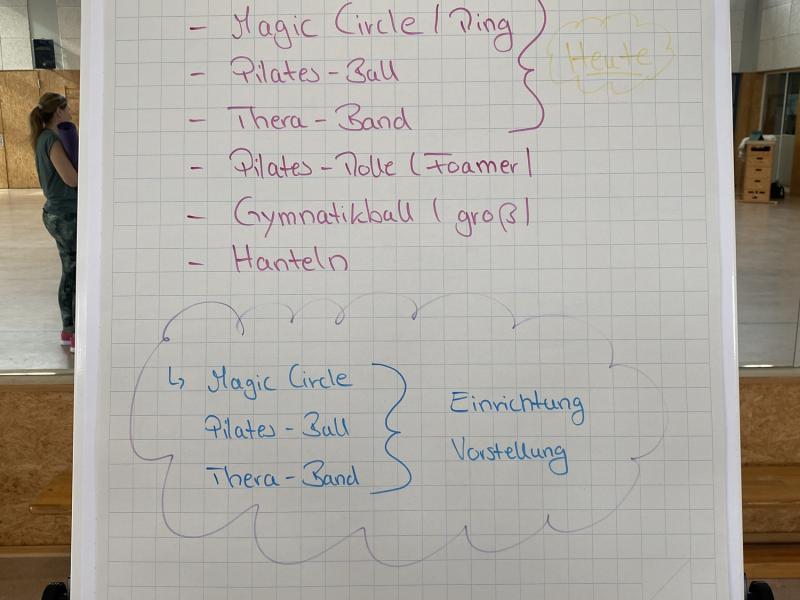 - Magic Circle / Ring
Heute
- Pilates - Ball
- Thera - Band
- Pilates - Rolle (Foamer)
- Gymnatikball (groß)
- Hanteln
↳ Magic Circle
Pilates - Ball
Thera - Band
Einrichtung
Vorstellung